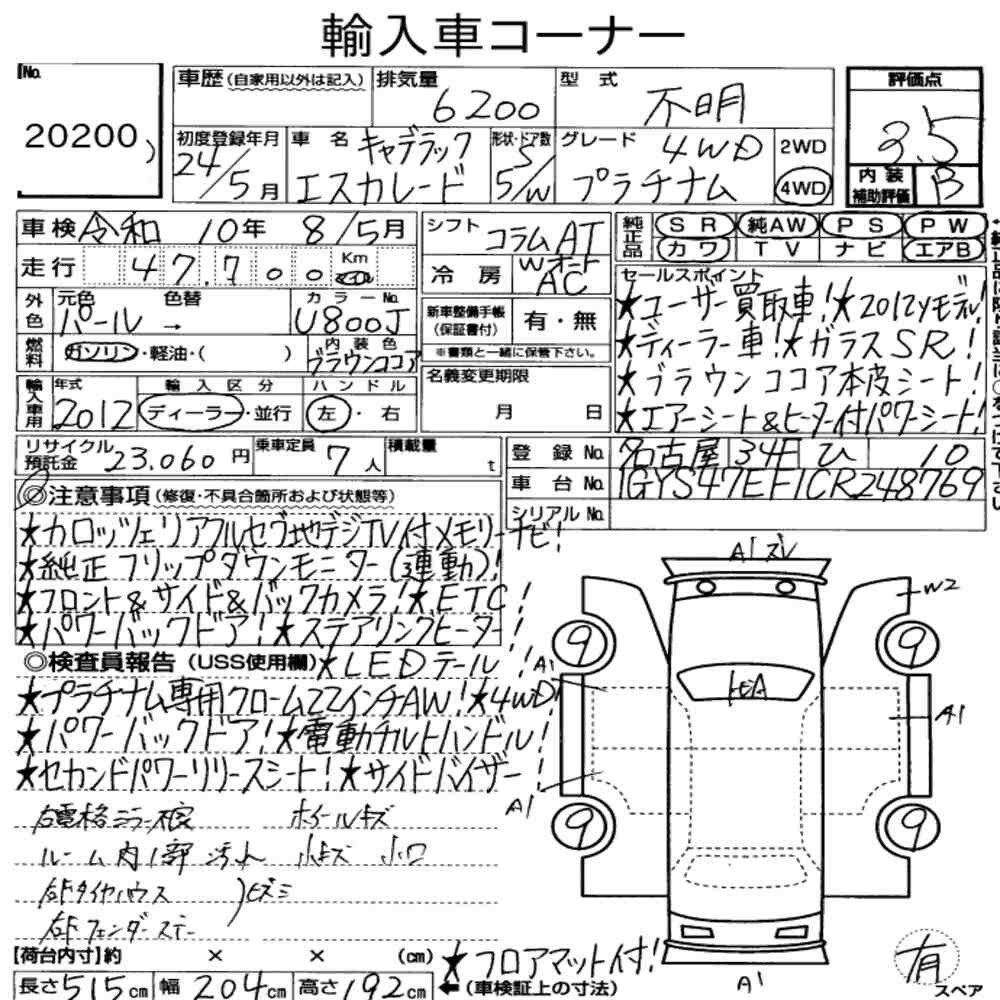 輸入車コーナー
No.
20200
車歴 (自家用以外は記入)
排気量
6200
型式
不明
評価点
3.5
初度登録年月
24/5月
車名
キャデラック
エスカレード
形状・ドア数
5/W
グレード
4WD
プラチナム
2WD
4WD
内装
補助評価
B
車検 令和 10年 8/5月
シフト
コラムAT
純正品
SR 純AW PS PW
カワ TV ナビ エアB
走行 47,700 Km
冷房
WオートAC
セールスポイント
★ユーザー買取車!★2012yモデル!
★ディーラー車!★ガラスSR!
★ブラウンココア本皮シート!
★エアーシート&ヒーター付パワーシート!
外色
元色
パール →
色替
カラーNo.
U800J
新車整備手帳
(保証書付)
有・無
※書類と一緒に保管下さい。
燃料
ガソリン・軽油・( )
内装色
ブラウンココア
名義変更期限
月 日
輸入車用
年式
2012
輸入区分
ディーラー・並行
ハンドル
左・右
リサイクル
預託金
23,060円
乗車定員
7人
積載量
t
登録No. 名古屋 34 ひ 10
車台No. 1GYS47EF1CR248769
シリアルNo.
◎注意事項 (修復・不具合箇所および状態等)
★カロッツェリアフルセグ地デジTV付メモリーナビ!
★純正フリップダウンモニター(3連動)!
★フロント&サイド&バックカメラ!★ETC!
★パワーバックドア!★ステアリングヒーター!
◎検査員報告 (USS使用欄)★LEDテール!
★プラチナム専用クローム22インチAW!★4WD!
★パワーバックドア!★電動チルトハンドル!
★セカンドパワーリリースシート!★サイドバイザー!
ホイールキズ
ルーム内1部汚れ 小キズ
A1
W2
9
9
A1
A1
A1
9
9
A1
【荷台内寸】約 × × (cm)
★フロアマット付!
長さ515cm 幅204cm 高さ192cm
←(車検証上の寸法)
有
スペア